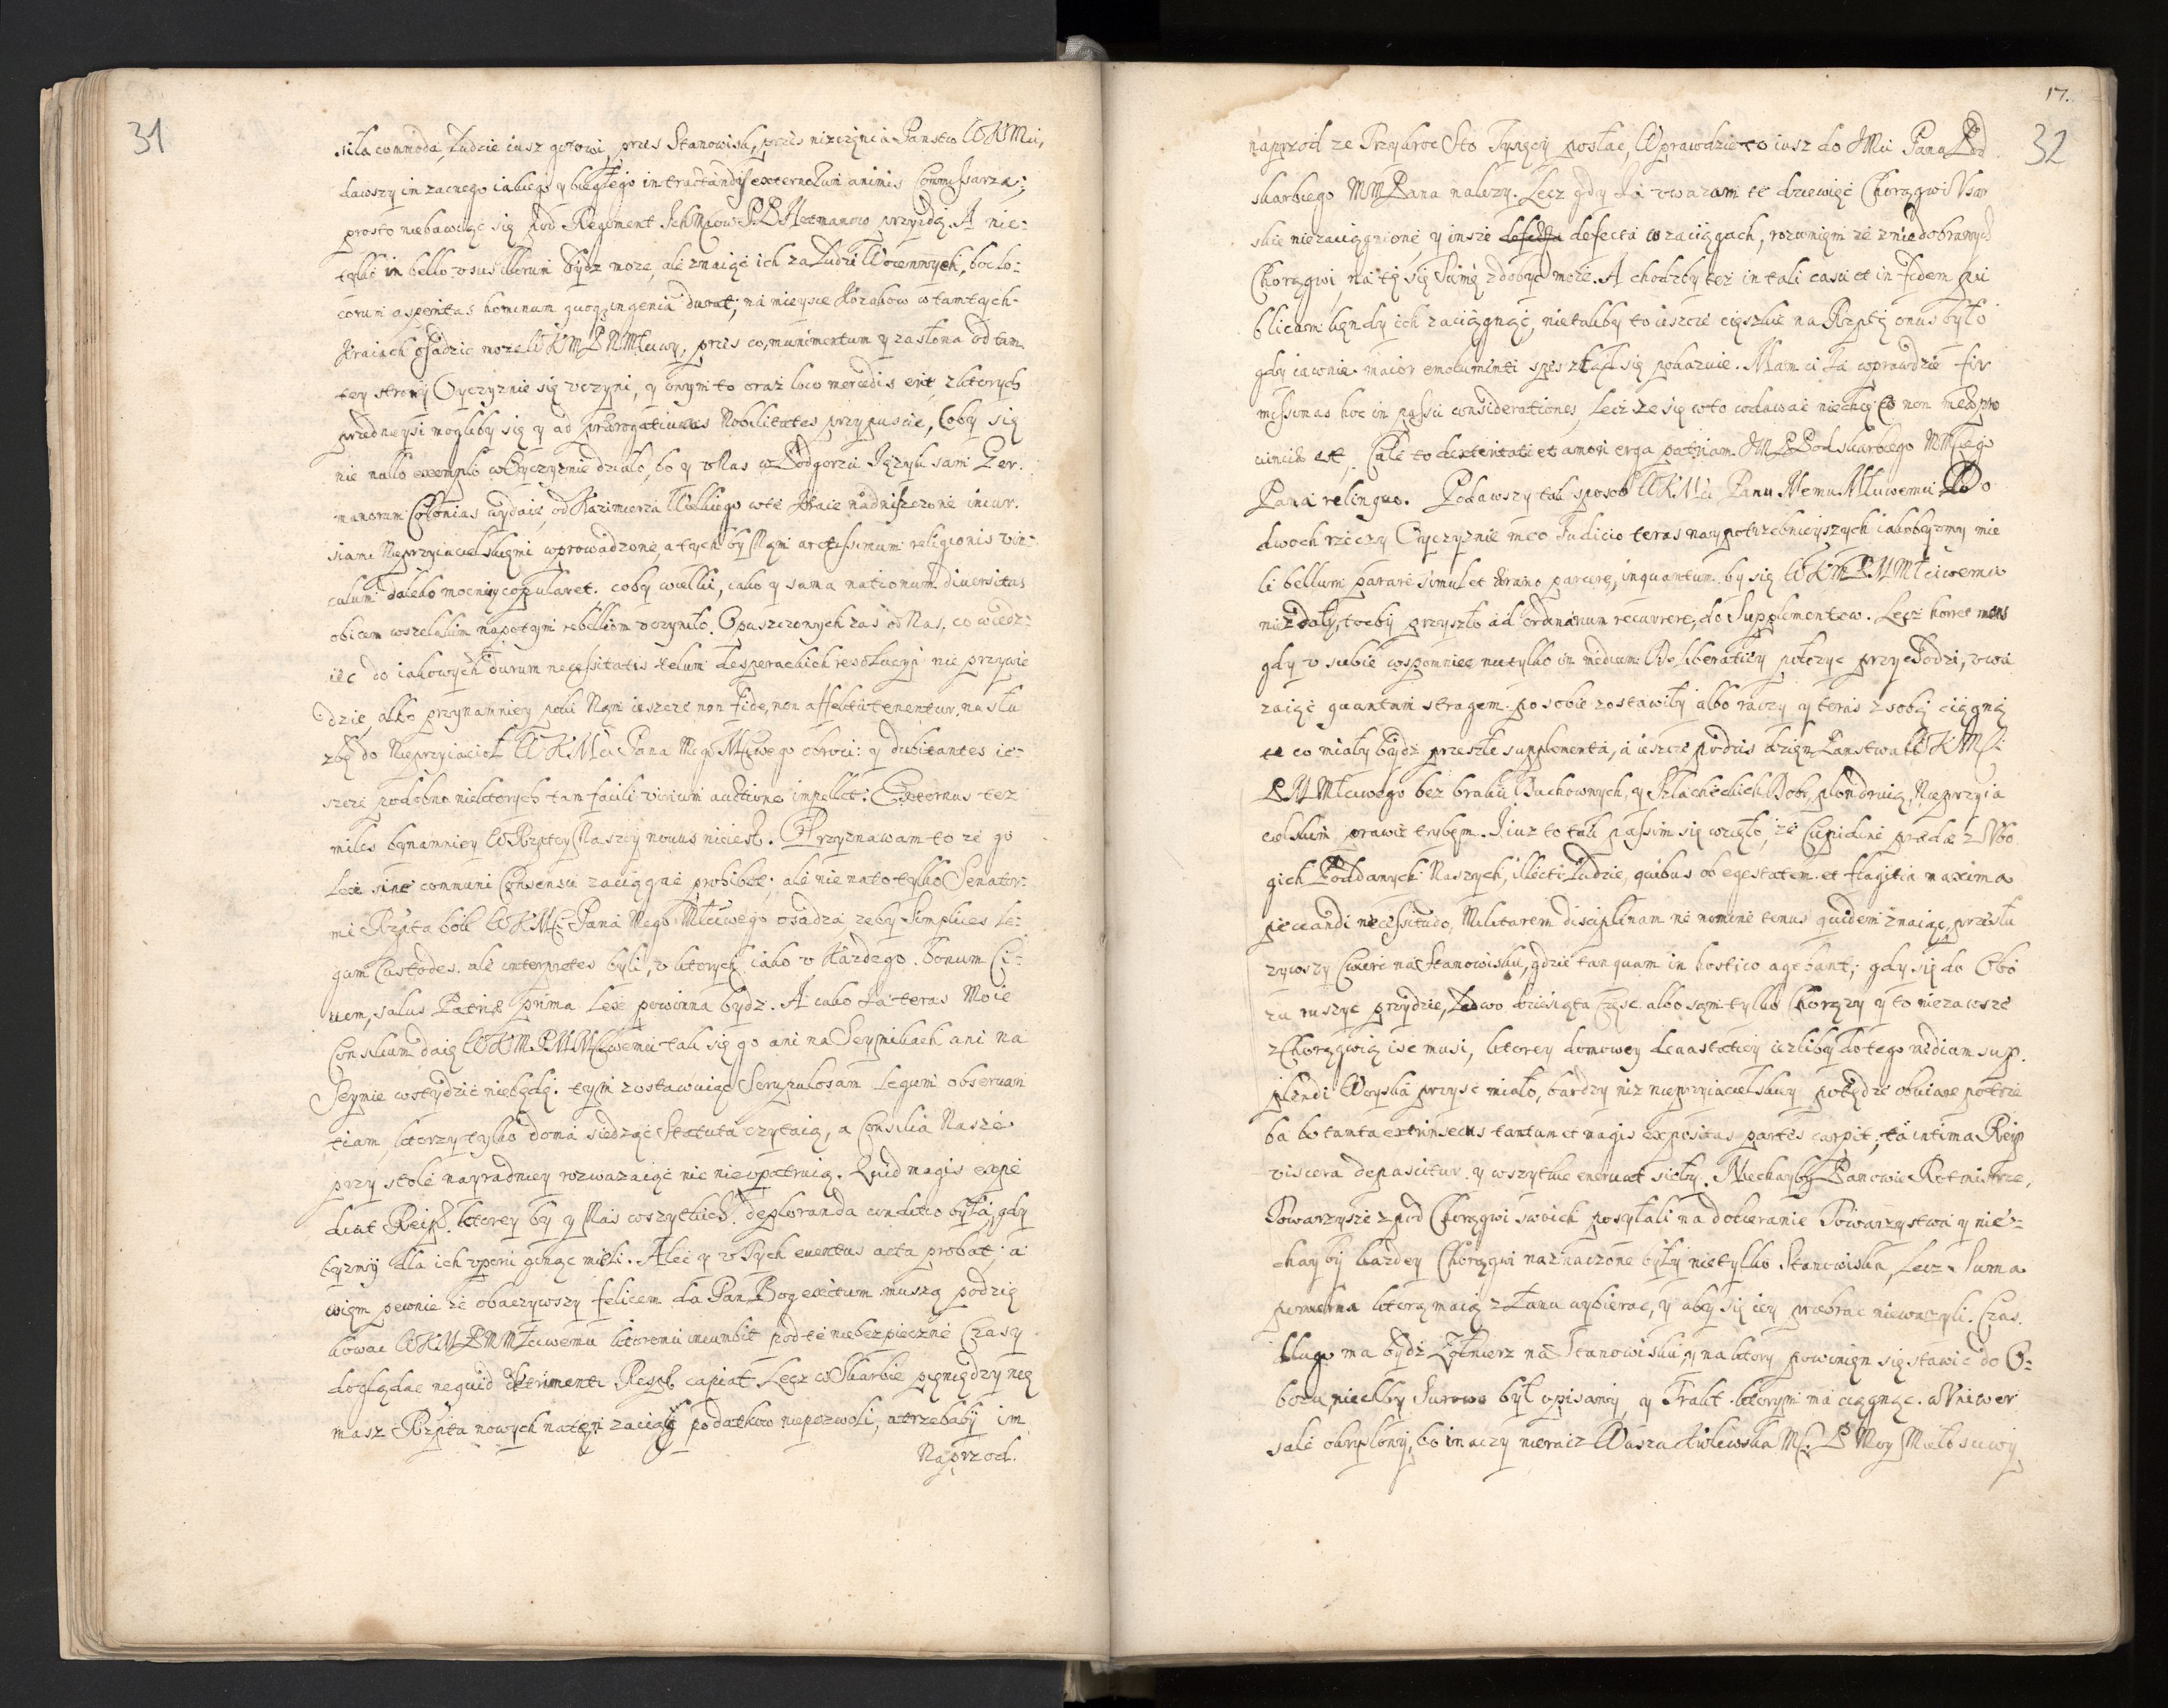 31
siła commoda, Ludzie iusz gotowi, przes Stanowisk, przes niszczęnia Panstw WKMci,
dawszy im zacnego iakiego y biegłego in tractandis externorum animis Commissarza,
prosto niebawiąc się pod Regiment IchMciow PP Hetmanow przyidą. A nie-
tylko in bello usui illorum bydz moze, ale znaiąc ich za Ludzi Woiennych, bo lo-
corum asperitas hominum quoq ingenia durat, na mieysce Kozakow w tamtych
Kraiach osadzic moze WKMPNMłciwy, przes co, munimentum y zasłona od tam-
tey strony Oyczyznie się uczyni, y onym to oraz loco mercedis erit, z ktorych
przednieysi mogliby się y ad prærogatiuas Nobilitates przypuscic, Coby się
nie nullo exemplo w Oyczyznie działo, bo y u Nas w Podgorzu Język sam Ger-
manorum Colonias wydaie, od Kazimierza Wielkiego w te Kraie nadniszczone incur-
siami Nieprzyiacielskiemi wprowadzone, a tych by Nąm arctissimum religionis vin-
culum daleko mocniey copularet. coby wielki, iako y sama nationum diuersitas
obicem wszelakim napotym rebelliom uczyniło. Opuszczonych zas od Nas, co wiedz-
iec do iakowych durum necessitatis telum desperackich resolucyi nie przywie-
dzie, albo przynamniey poki Nąm ieszcze non fide, non affectu tenentur, na słu
zbę do Nieprzyiacioł WKMci Pana Mego Młciwego obroci: y dubitantes ie-
szcze podobno niektorych tam facili virium auctione impellet: Externus tez
miles bynamniey w Rzptey Naszey nouus nie iest. Przyznawam to ze go
Lex sine communi Consensu zaciągac prohibet; ale nie na to tylko Senator-
mi Rzpta bok WKMci Pana Mego Młciwego osadza zeby Simplices Le-
gum Custodes. ale interpretes byli, u ktorych iako u Kazdego bonum Ci-
uem, salus Patriæ prima Lex powinna bydz. A iako Ja teras Moie
Consilium daię WKMPNMłciwemu tak się go ani na Seymikach ani na
Seymie wstydzic niebędę. tym zostawuiąc Scrupulosam Legum obseruan
tiam, ktorzy tylko doma siedząc Statuta czytaią, a Consilia Nasze
przy stole nayradniey rozwazaiąc nic nie upatruią. Quid magis expe
diat Reip. ktorey by y Nas wszytkich deploranda conditio była, gdy
byzmy dla ich uporu ginąc mieli. Alec y u Tych euentus acta probat; a
wiem pewnie ze obaczywszy felicem da Pan Bog exitum muszą podzię
kowac WKMPNMłciwemu ktoremu incumbit pod te niebezpieczne Czasy
doglądac nequid detrimenti Resp. capiat. Lecz w Skarbie pięniędzy nie
masz Rzpta nowych na ten zaciąg podatkow niepozwoli, a trzebaby im
Naprzod.
17.
32
naprzod ze Trzykroc Sto Tysięcy posłac, Wprawdzie to iusz do JMci Pana Pod
skarbiego MMPana nalezy. Lecz gdy Ja uwazam te dziewięc Chorągwi Usar
skie niezaciągnione, y insze defecta w zaciągach, rozumiem ze z niedobranych
Chorągwi, na tę się Sumę zdobyc moze. A chodzby tez in tali casu et in fidem pu
blicam kiędy ich zaciągnąc, nie takby to ieszcze cięszkie na Rzptę onus było
gdy iawnie maior emolumenti spes ztąd się pokazuie. Mam ci Ja wprawdzie fir
missimas hoc in passu considerationes, Lecz ze się w to wdawac niechcę co non meæ pro
uinciæ est, Cale to dexteritati et amori erga patriam JMPPodskarbiego MMego
Pana relinquo. Podawszy tak sposob WKMci Panu Memu Młciwemu Do
dwoch rzeczy Oyczyznie meo Judicio teras naypotrzebnieyszych iakobyzmy mie
li bellum parare simul et ærario parcere, inquantum by się WKMPNMłciwemu
niezdały, toby przyszło ad ordinarium recurrere, do Supplementow. Lecz horret mens
gdy u siebie wspomniec nietylko in medium Deliberatiey połozyc przychodzi, uwa
zaiąc quantam stragem po sobie zostawiły albo raczy y teras z sobą ciągną
te co miały bydz przeszłe supplementa, a ieszcze podzis dzien Panstwa WKMci
PNMłciwego bez braku Duchownych, y Szlacheckich Dobr, plondruią, Nieprzyia
cielskim prawie trybem. Juz to tak passim się wzięło, ze Cupidine prædæ z Ubo
gich Poddanych Naszych, illecti Ludzie, quibus ob egestatem et flagitia maxima
peccandi necessitudo, Militarem disciplinam ne nomine tenus quidem znaiąc, przesłu
zywszy Cwierc na Stanowisku, gdzie tanquam in hostico agebant; gdy się do Obo
zu ruszyc przydzie, Ledwo dziesiąta Częsc albo sąm tylko Chorązy y to niezawsze
z Chorągwią isc musi, ktorey domowey deuastatiey iezliby do tego mediam sup
plendi Woyska przysc miało, bardzy niz nieprzyiacielskiey potędze obuiare potrze
ba bo tamta extrinsecus tantum et magis expositas partes carpit, ta intima Reip
viscera depascitur y wszytkie eneruat siełły. Niechayby Panowie Rotmistrze,
Towarzysze z pod Chorągwi swoich posyłali na dobieranie Towarzystwa y nie-
chay by kazdey Chorągwi naznaczone były nie tylko Stanowiska, Lecz Suma
pewna ktorą maią z Łanu wybierac, y aby się iey przebrac niewazyli. Czas
długo ma bydz Zołnierz na Stanowisku, y na ktory powinien się stawic do O-
bozu, niechby Surowo był opisany, y Trakt ktorym ma ciągnąc. w Vniwer
sale okryslony, bo inaczy nieracz Wasza Krolewska Mc. P Moy Miełosciwy